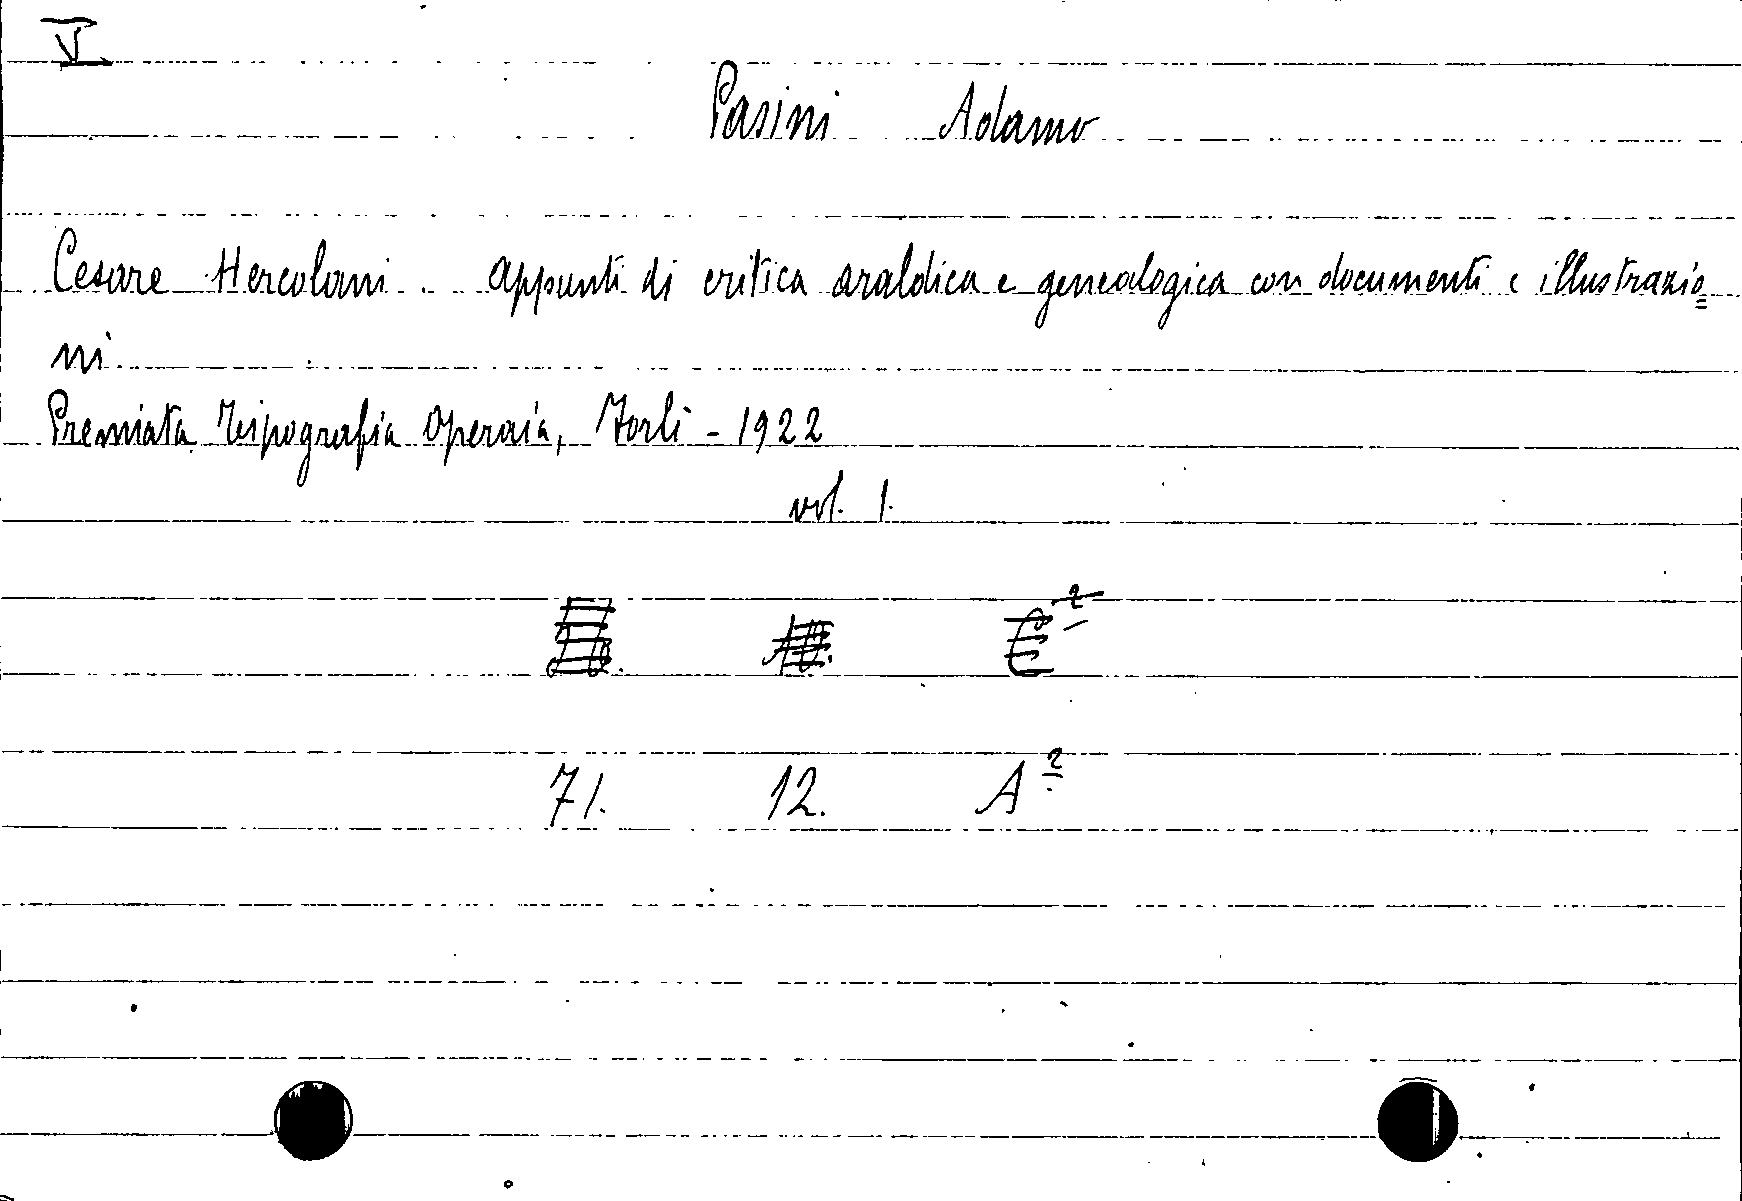 V
Pasini Adamo
Cesare Hercolani. appunti di critica araldica e genealogica con documenti e illustrazio=
ni.
Premiata Tipografia Operaia, Forlì - 1922
vol. 1.
E²
71. 12. A²